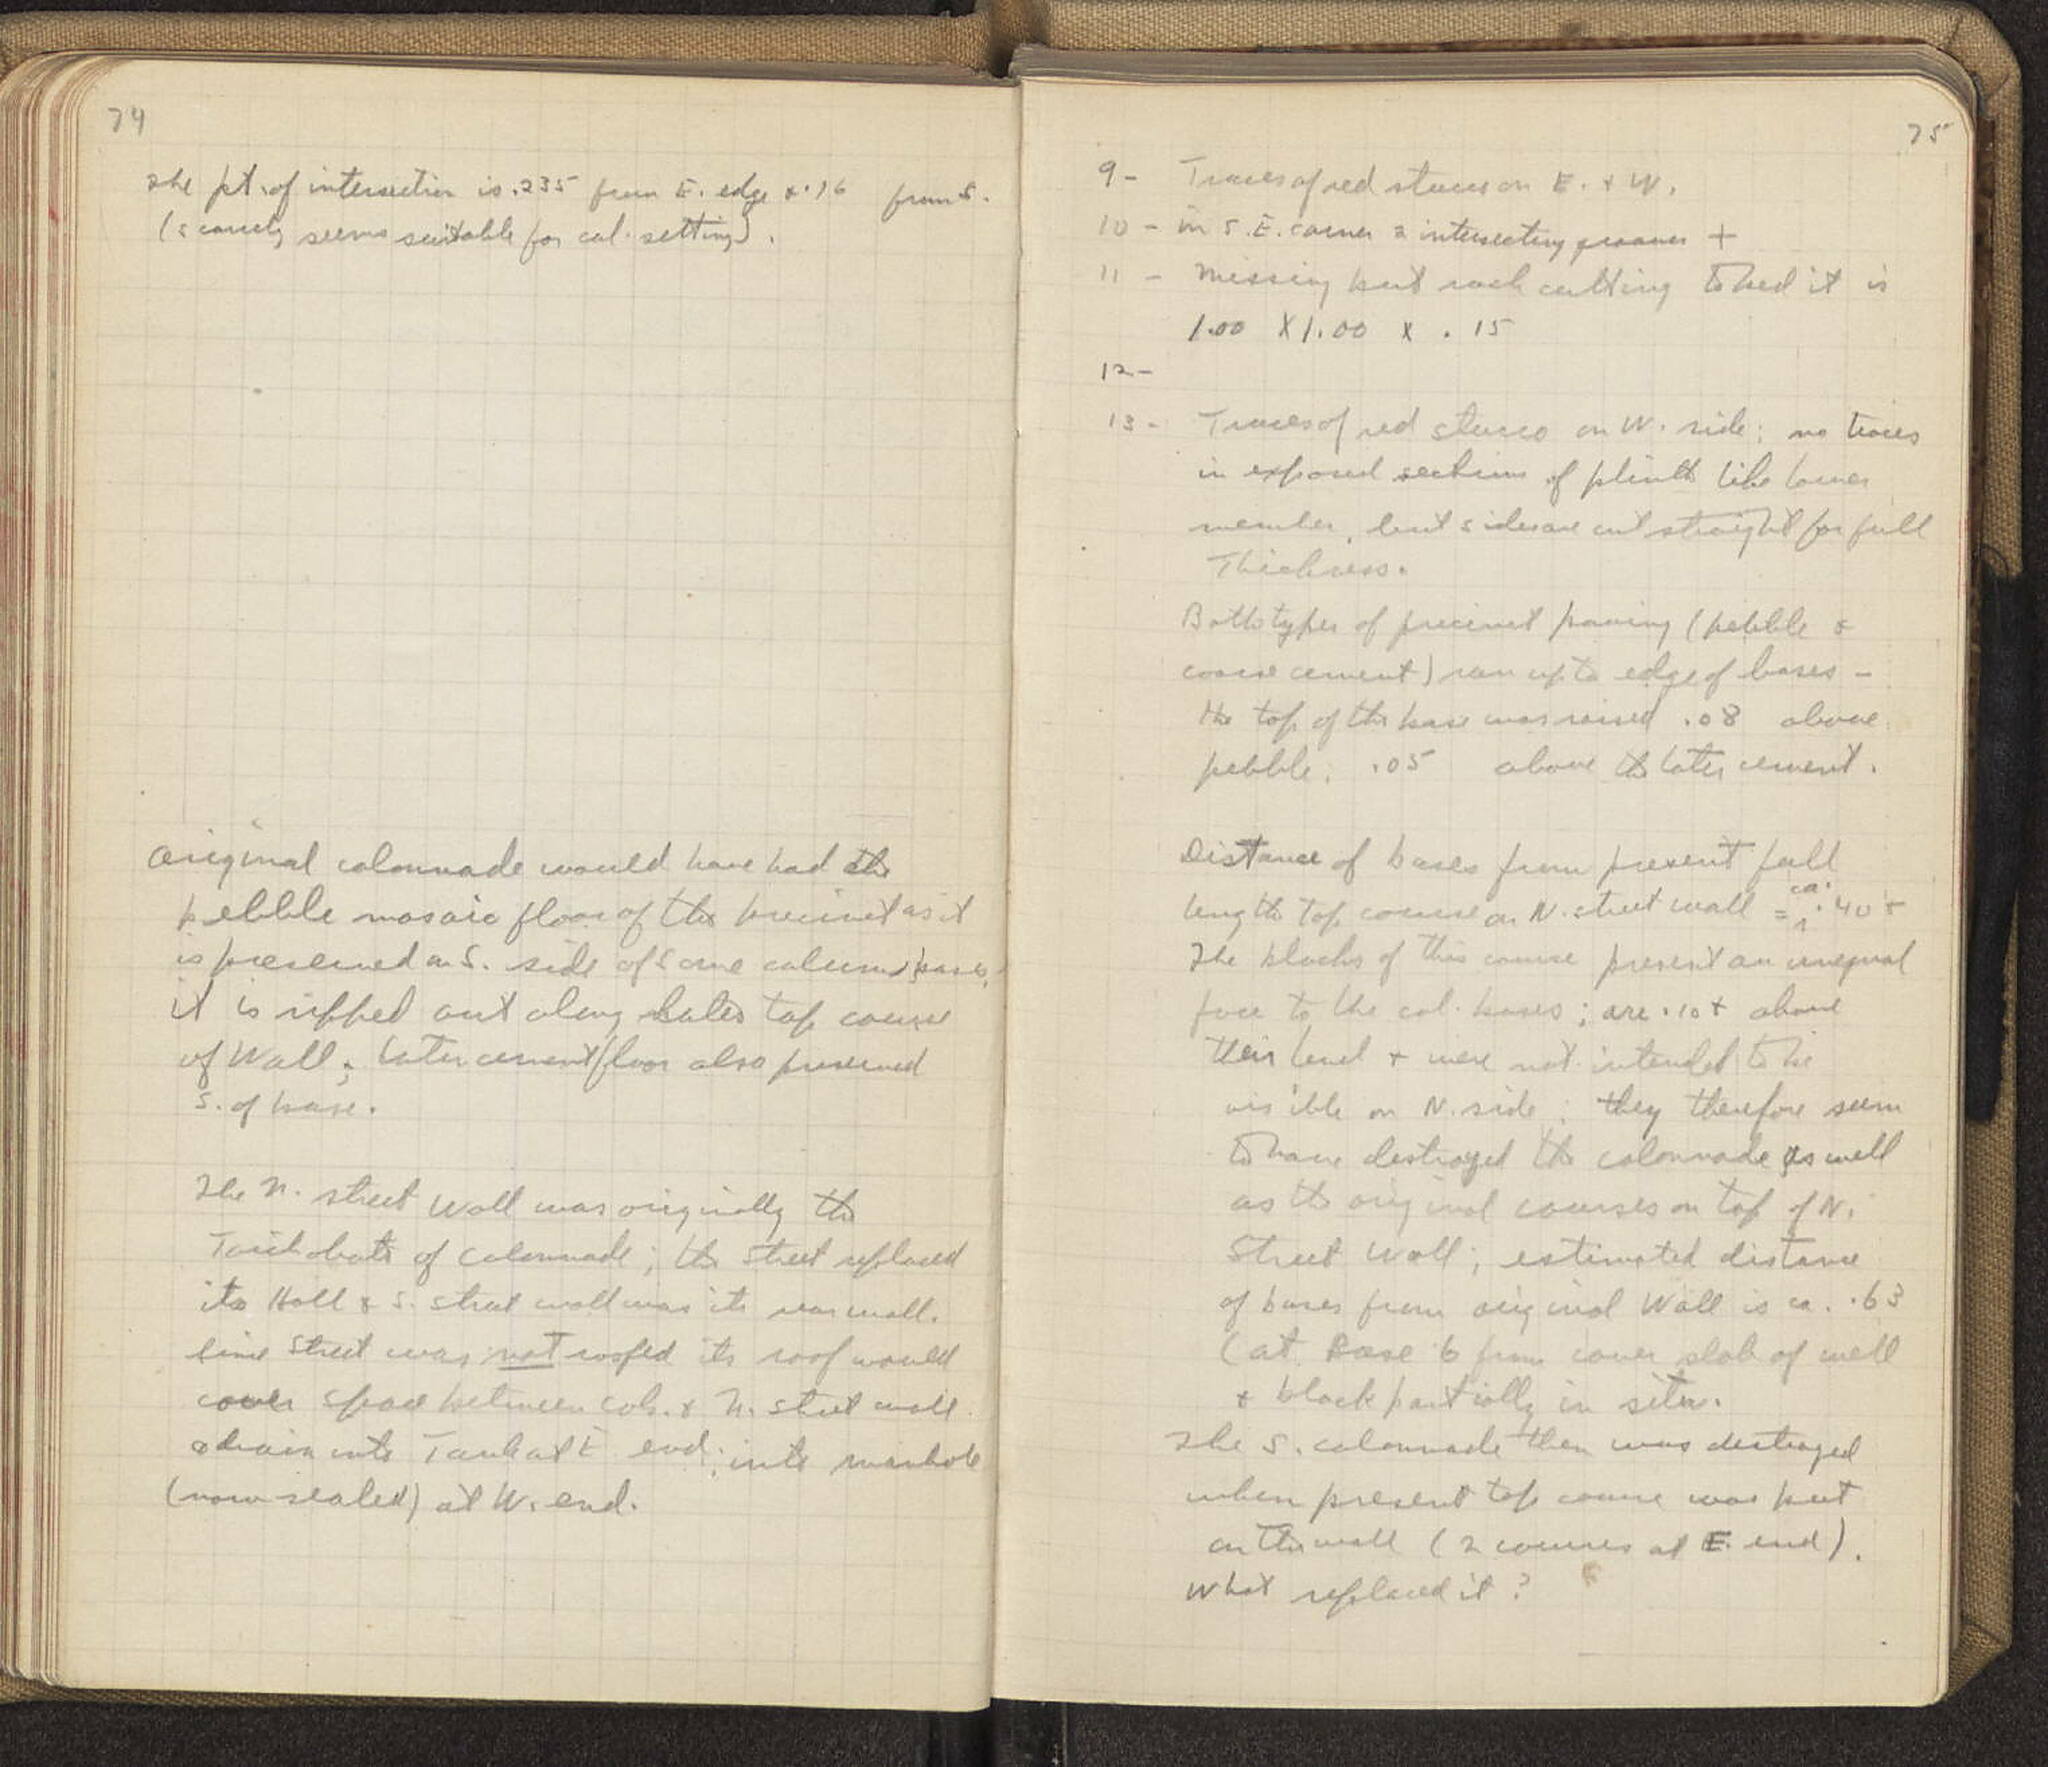 74
The pt. of intersection is .235 from E. edge & .16 from S.
(scarcely seems suitable for col. setting).
Original colonnade would have had the
pebble mosaic floor of the precinct as it
is preserved on S. side of some column bases,
it is ripped out along later top course
of Wall; later cement floor also preserved
S. of base.
The N. street wall was originally the
Toichobate of colonnade; the street replaced
its Hall & S. street wall was its rear wall.
Since Street was not roofed its roof would
cover space between cols. & N. street wall
& drain into Tank at E end; into manhole
(now sealed) at W. end.
75
9 - Traces of red stucco on E. & W.
10 - in S.E. corner 2 intersecting grooves +
11 - Missing but rock cutting to bed it is
1.00 X 1.00 x .15
12 -
13 - Traces of red stucco on W. side; no traces
in exposed sections of plinth like lower
member, but sides are cut straight for full
Thickness.
Both types of precinct paving (pebble &
coarse cement) ran up to edge of bases -
the top of the base was raised .08 above
pebble; .05 above the later cement.
Distance of bases from present full
length top course on N. street wall = ca. .40 ±
The blocks of this course present an unequal
face to the col. bases; are .10 ± above
their level & were not intended to be
visible on N. side; they therefore seem
to have destroyed the colonnade as well
as the original courses on top of N.
Street Wall; estimated distance
of bases from original Wall is ca. .63
(at Base 6 from cover slab of well
& block partially in situ.
The S. colonnade then was destroyed
when present top course was put
on the wall (2 courses at E. end).
What replaced it?